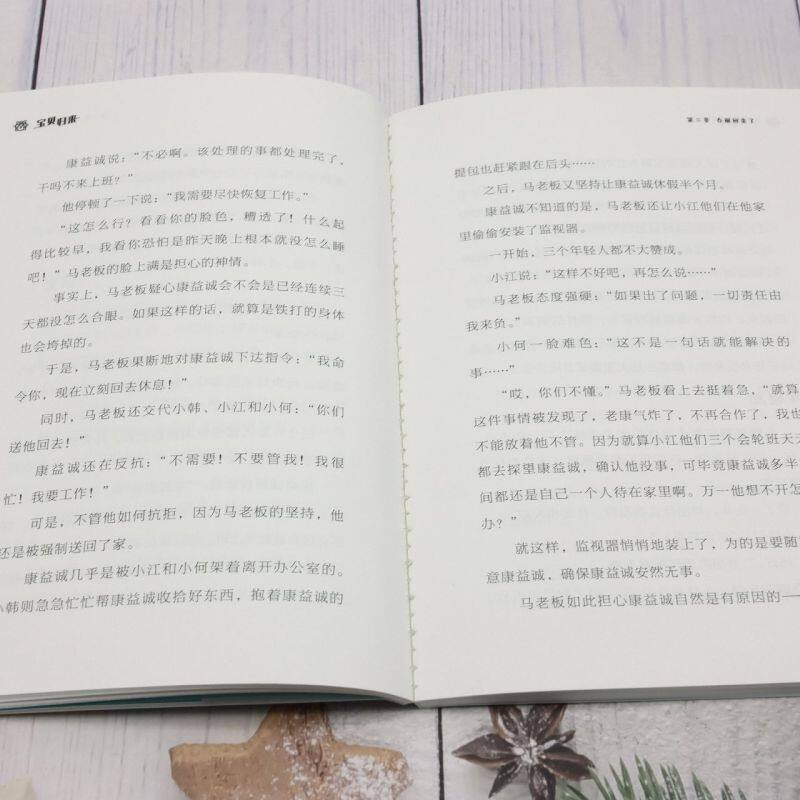 宝贝归来
康益诚说：“不必啊。该处理的事都处理完了，
干吗不来上班？”
他停顿了一下说：“我需要尽快恢复工作。”
“这怎么行？看看你的脸色，糟透了！什么起
得比较早，我看你恐怕是昨天晚上根本就没怎么睡
吧！”马老板的脸上满是担心的神情。
事实上，马老板疑心康益诚会不会是已经连续三
天都没怎么合眼。如果这样的话，就算是铁打的身体
也会垮掉的。
于是，马老板果断地对康益诚下达指令：“我命
令你，现在立刻回去休息！”
同时，马老板还交代小韩、小江和小何：“你们
送他回去！”
康益诚还在反抗：“不需要！不要管我！我很
忙！我要工作！”
可是，不管他如何抗拒，因为马老板的坚持，他
还是被强制送回了家。
康益诚几乎是被小江和小何架着离开办公室的。
小韩则急急忙忙帮康益诚收拾好东西，抱着康益诚的
提包也赶紧跟在后头……
之后，马老板又坚持让康益诚休假半个月。
康益诚不知道的是，马老板还让小江他们在他家
里偷偷安装了监视器。
一开始，三个年轻人都不太赞成。
小江说：“这样不好吧，再怎么说……”
马老板态度强硬：“如果出了问题，一切责任由
我来负。”
小何一脸难色：“这不是一句话就能解决的
事……”
“哎，你们不懂。”马老板看上去挺着急，“就算
这件事情被发现了，老康气炸了，不再合作了，我也
不能放着他不管。因为就算小江他们三个会轮班天天
都去探望康益诚，确认他没事，可毕竟康益诚多半
间都还是自己一个人待在家里啊。万一他想不开怎
办？”
就这样，监视器悄悄地装上了，为的是要随
意康益诚，确保康益诚安然无事。
马老板如此担心康益诚自然是有原因的—